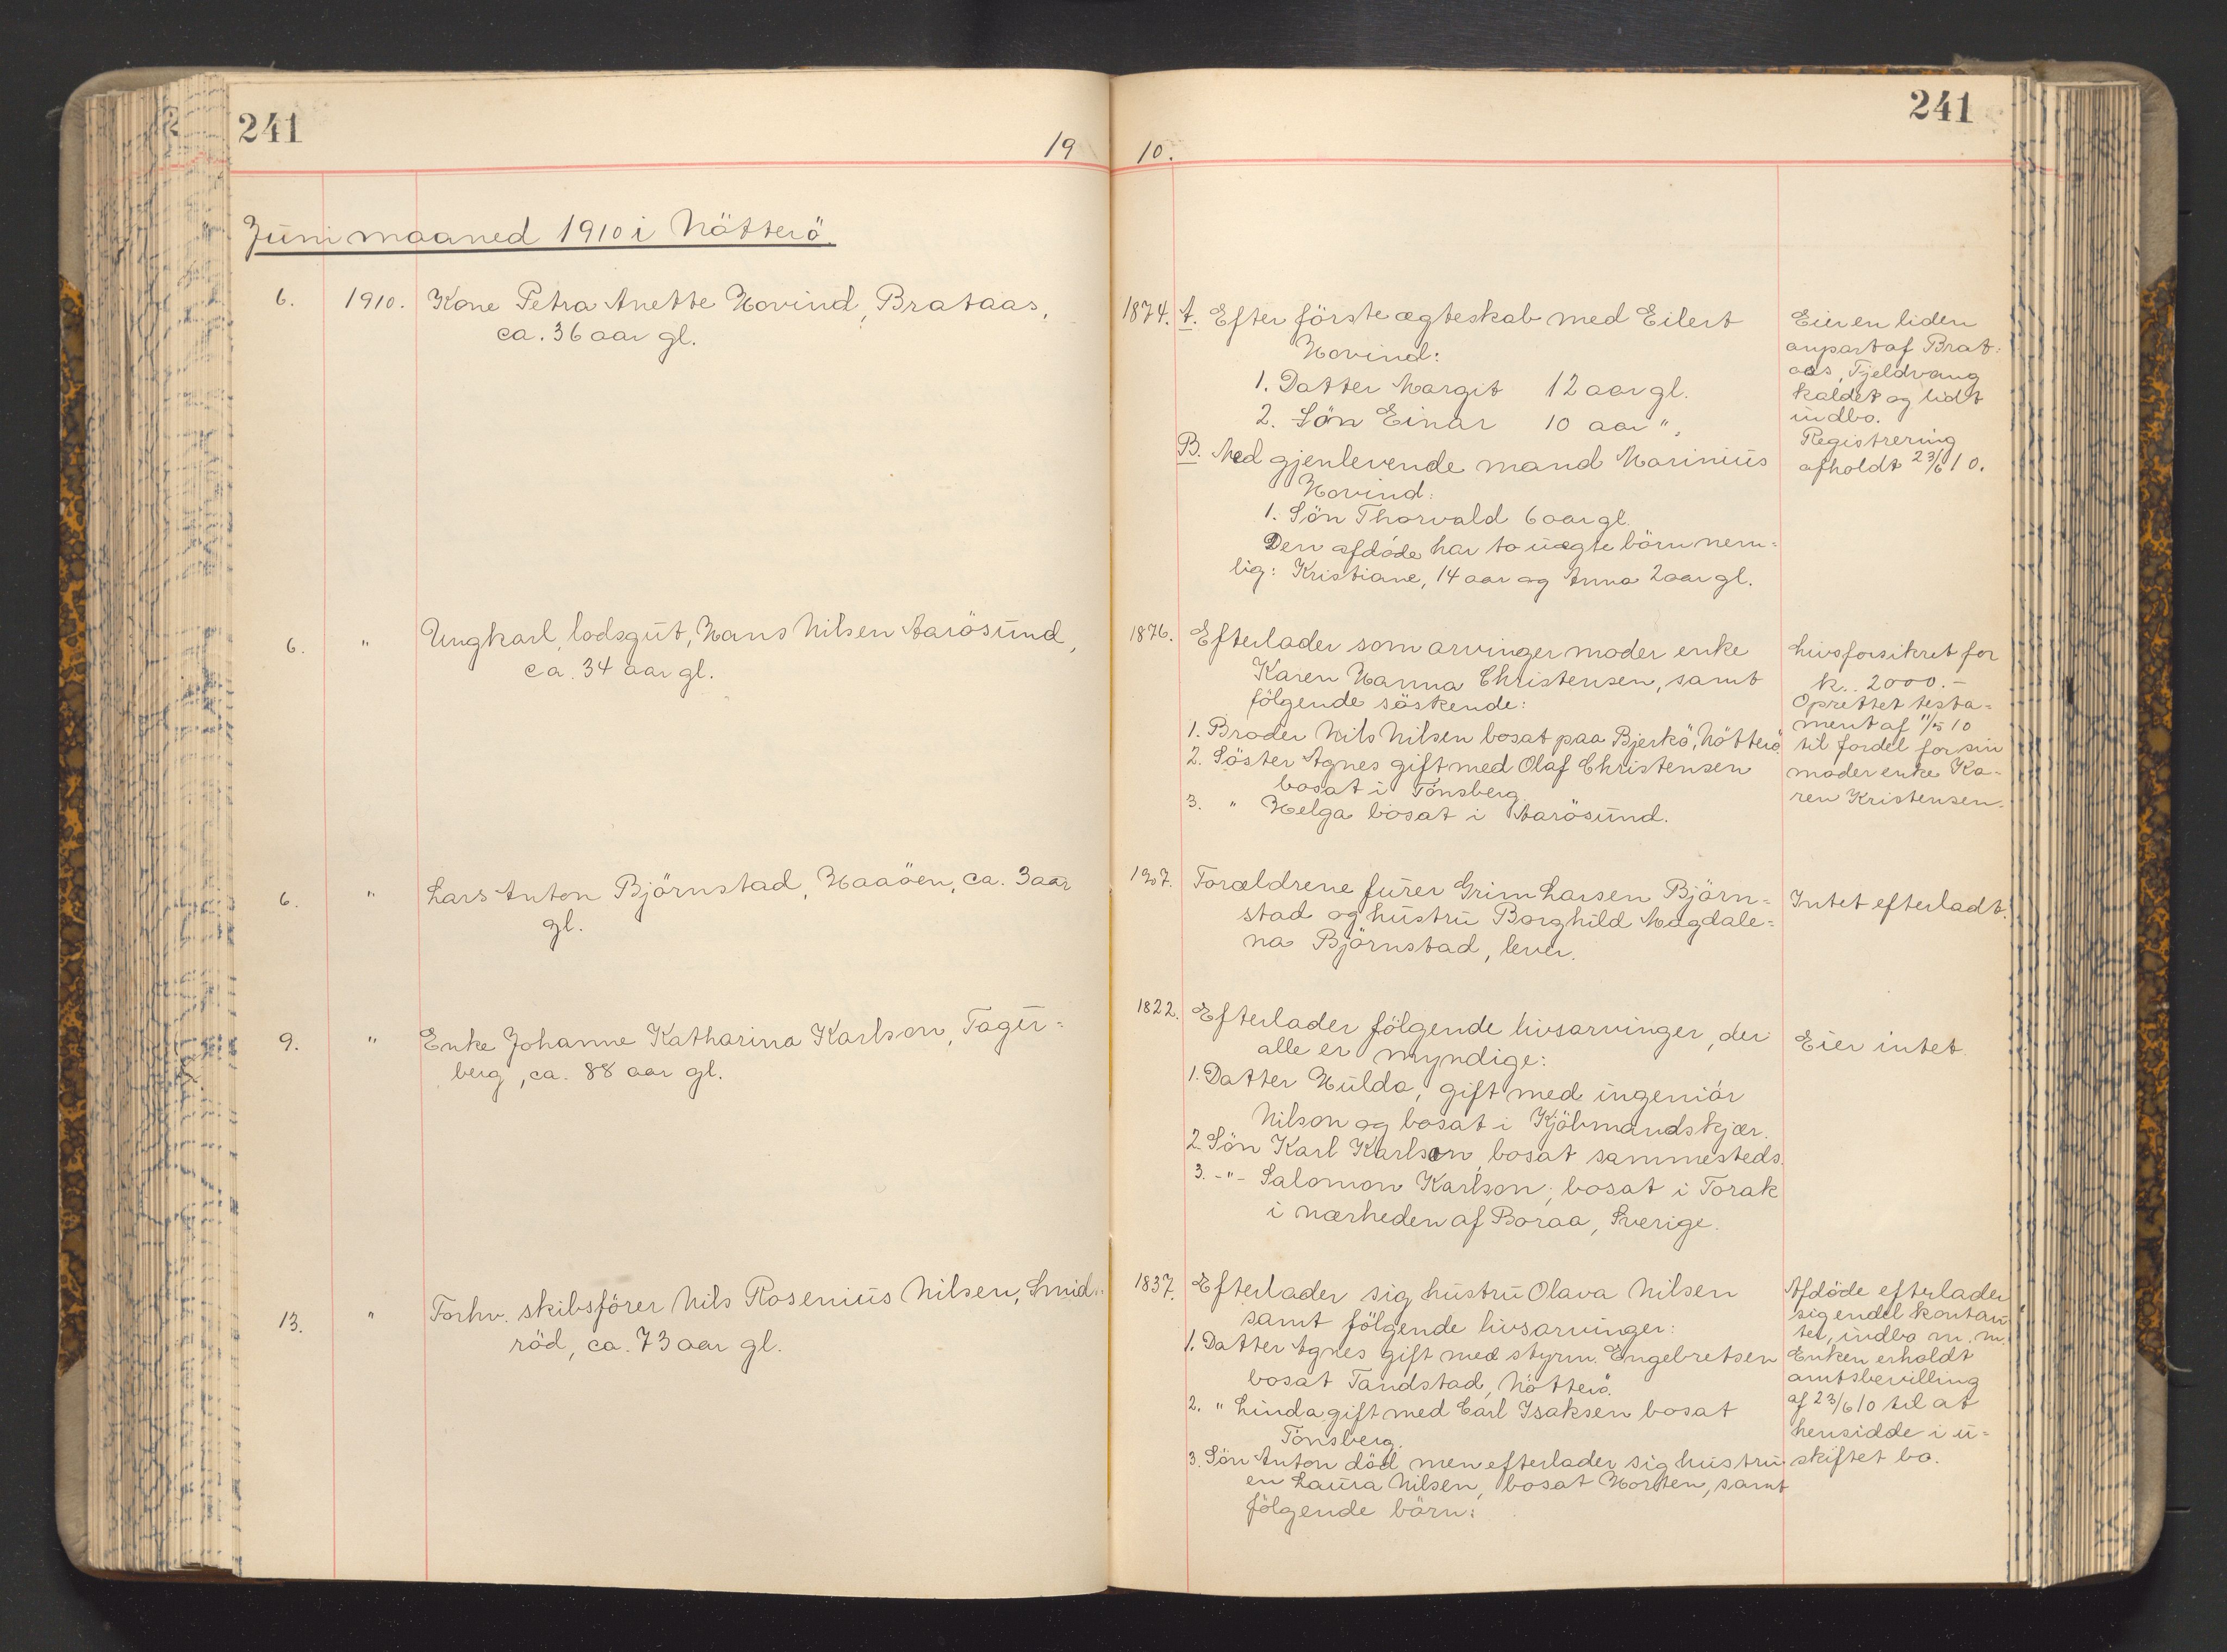 241
241
19 10.
Juni maaned 1910 i Nötterö.
6. 1910. Kone Petra Anette Hovind, Brataas,
ca. 36 aar gl.
1874. A. Efter förste ægteskab med Eilert
Hovind:
1. Datter Margit 12 aar gl.
2. Sön Einar 10 aar ".
B. Med gjenlevende mand Marinius
Hovind:
1. Sön Thorvald 6 aar gl.
Den afdöde har to uægte börn nem=
lig: Kristiane, 14 aar og Anna 2 aar gl.
Eier en liden
anpart af Brat=
aas, Fjeldvang
kaldet og lidt
indbo.
Registrering
afholdt 23/6 10.
6. " Ungkarl, lodsgut, Hans Nilsen Aarösund,
ca. 34 aar gl.
1876. Efterlader som arvinger moder enke
Karen Hanna Christensen, samt
fölgende söskende:
1. Broder Nils Nilsen bosat paa Bjerkö, Nötterö.
2. Söster Agnes gift med Olaf Christensen
bosat i Tönsberg.
3. " Helga bosat i Aarösund.
Livsforsikret for
k.. 2000.-
Oprettet testa=
ment af 11/5 10
til fordel for sin
moder enke Ka=
ren Kristensen.
6. " Lars Anton Björnstad, Haaöen, ca. 3 aar
gl.
1907. Forældrene furer Grim Larsen Björn=
stad og hustru Borghild Magdale=
na Björnstad, lever.
Intet efterladt.
9. " Enke Johanne Katharina Karlson, Tager=
berg, ca. 88 aar gl.
1822. Efterlader fölgende livsarvinger, der
alle er myndige:
1. Datter Hulda, gift med ingeniör
Nilson og bosat i Kjöbmandskjær.
2. Sön Karl Karlson, bosat sammesteds.
3. -"- Salomon Karlson, bosat i Torak
i nærheden af Boraa, Sverige.
Eier intet.
13. " Forhv. skibsförer Nils Rosenius Nilsen, Smid=
röd, ca. 73 aar gl.
1837. Efterlader sig hustru Olava Nilsen
samt fölgende livsarvinger:
1. Datter Agnes gift med styrm. Engebretsen
bosat Tandstad, Nötterö.
2. " Linda gift med Carl Isaksen bosat
Tönsberg.
3. Sön Anton död men efterlader sig hustru
en Laura Nilsen, bosat Horten, samt
fölgende börn:
Afdöde efterlader
sig endel kontan
ter, indbo m. m.
Enken erholdt
amtsbevilling
af 23/6 10 til at
hensidde i u=
skiftet bo.